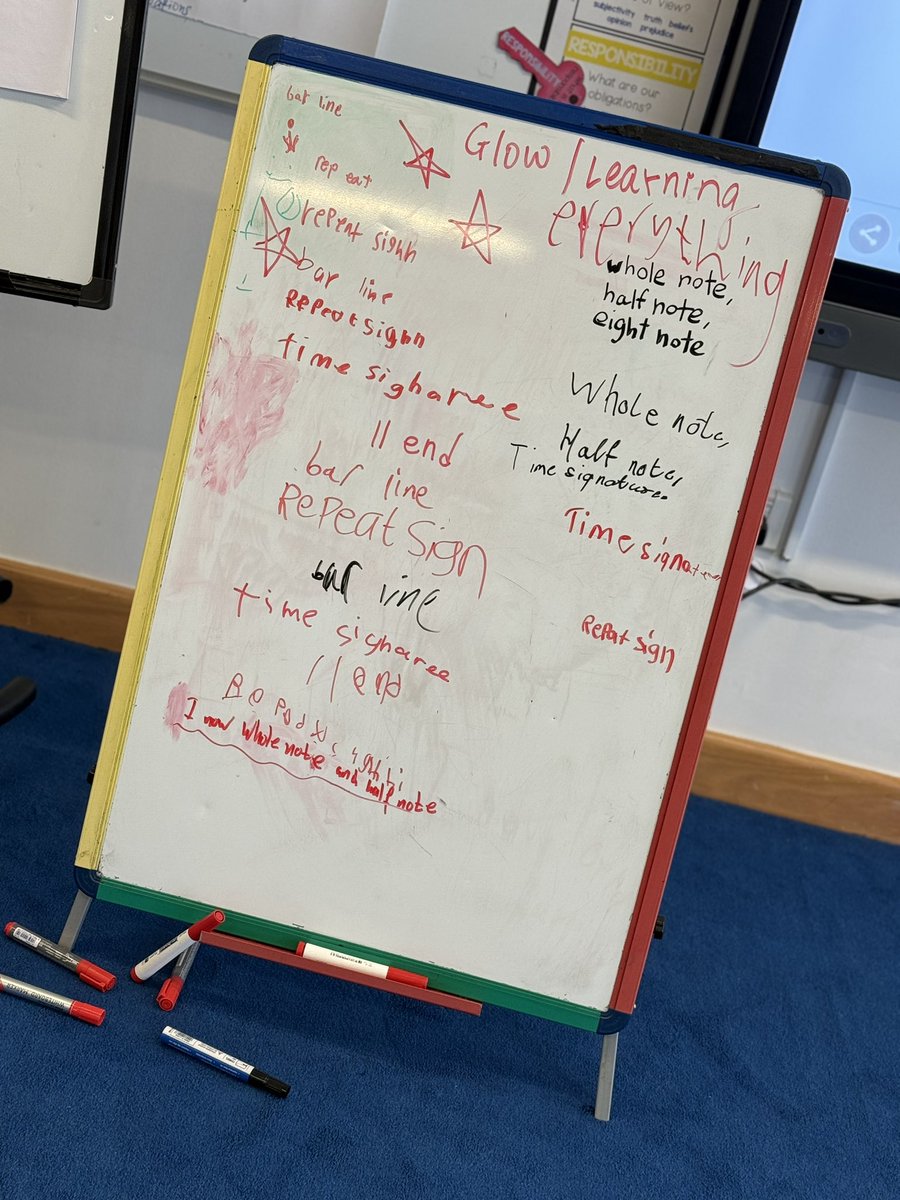 of view?
subjectivity truth beliefs
opinion prejudice
RESPONSIBILITY
RESPONSIBILITY
What are our
obligations?
bar line
rep eat
Glow / Learning
everything
repeat sighn
bar line
Repeat sighn
time sigharee
end
bar line
REPEAT Sign
bar line
time sigharee
end
I now whole note and half note
whole note,
half note,
eight note
Whole note,
Half note,
Time signature.
Time signature
Repeat sign